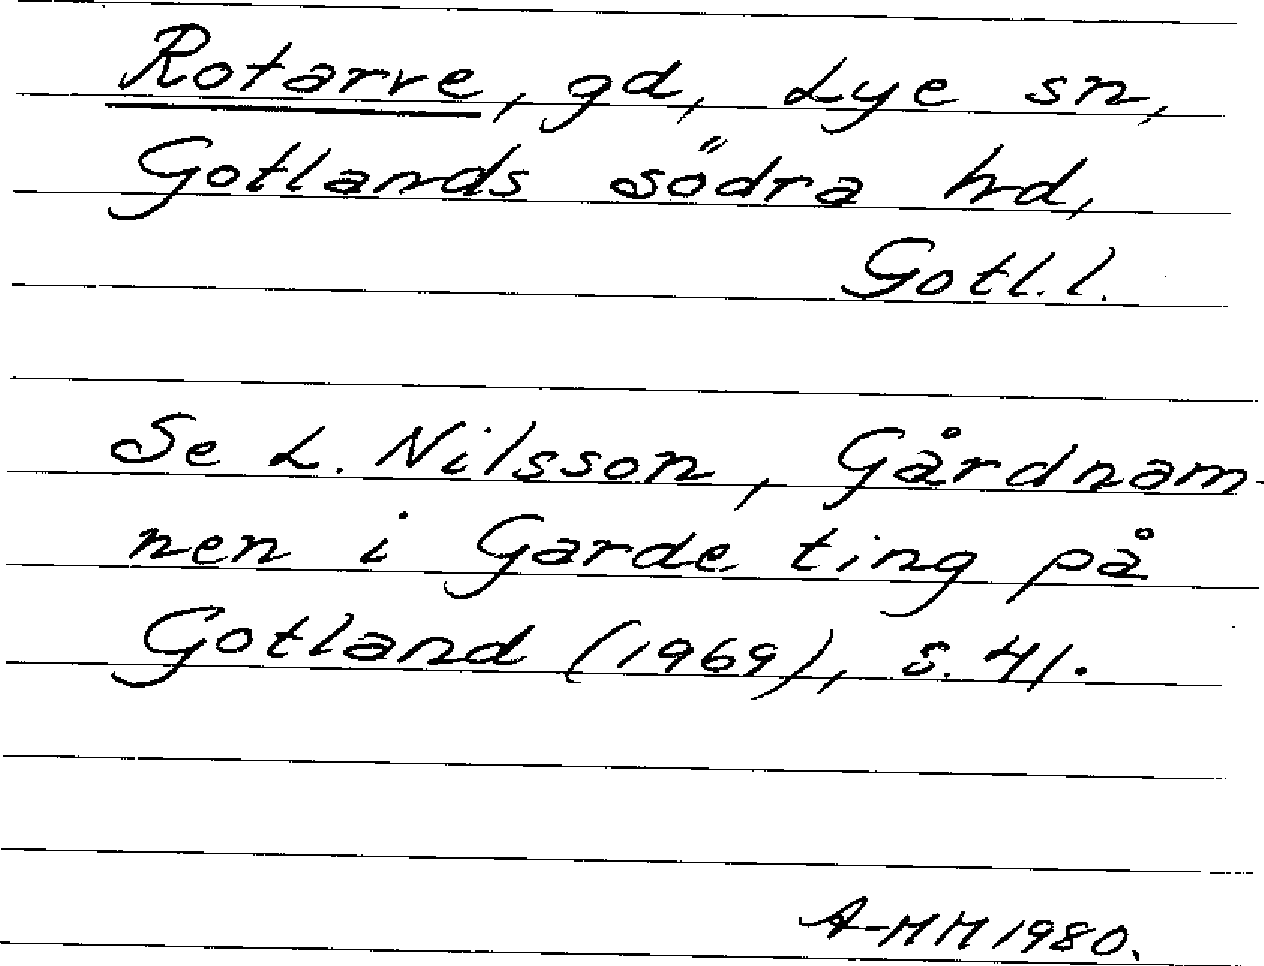 Rotarve, gd, Lye sn,
Gotlands södra hd,
Gotl. l.
Se L. Nilsson, Gårdnam-
nen i Garde ting på
Gotland (1969), s. 41.
A-MM 1980.